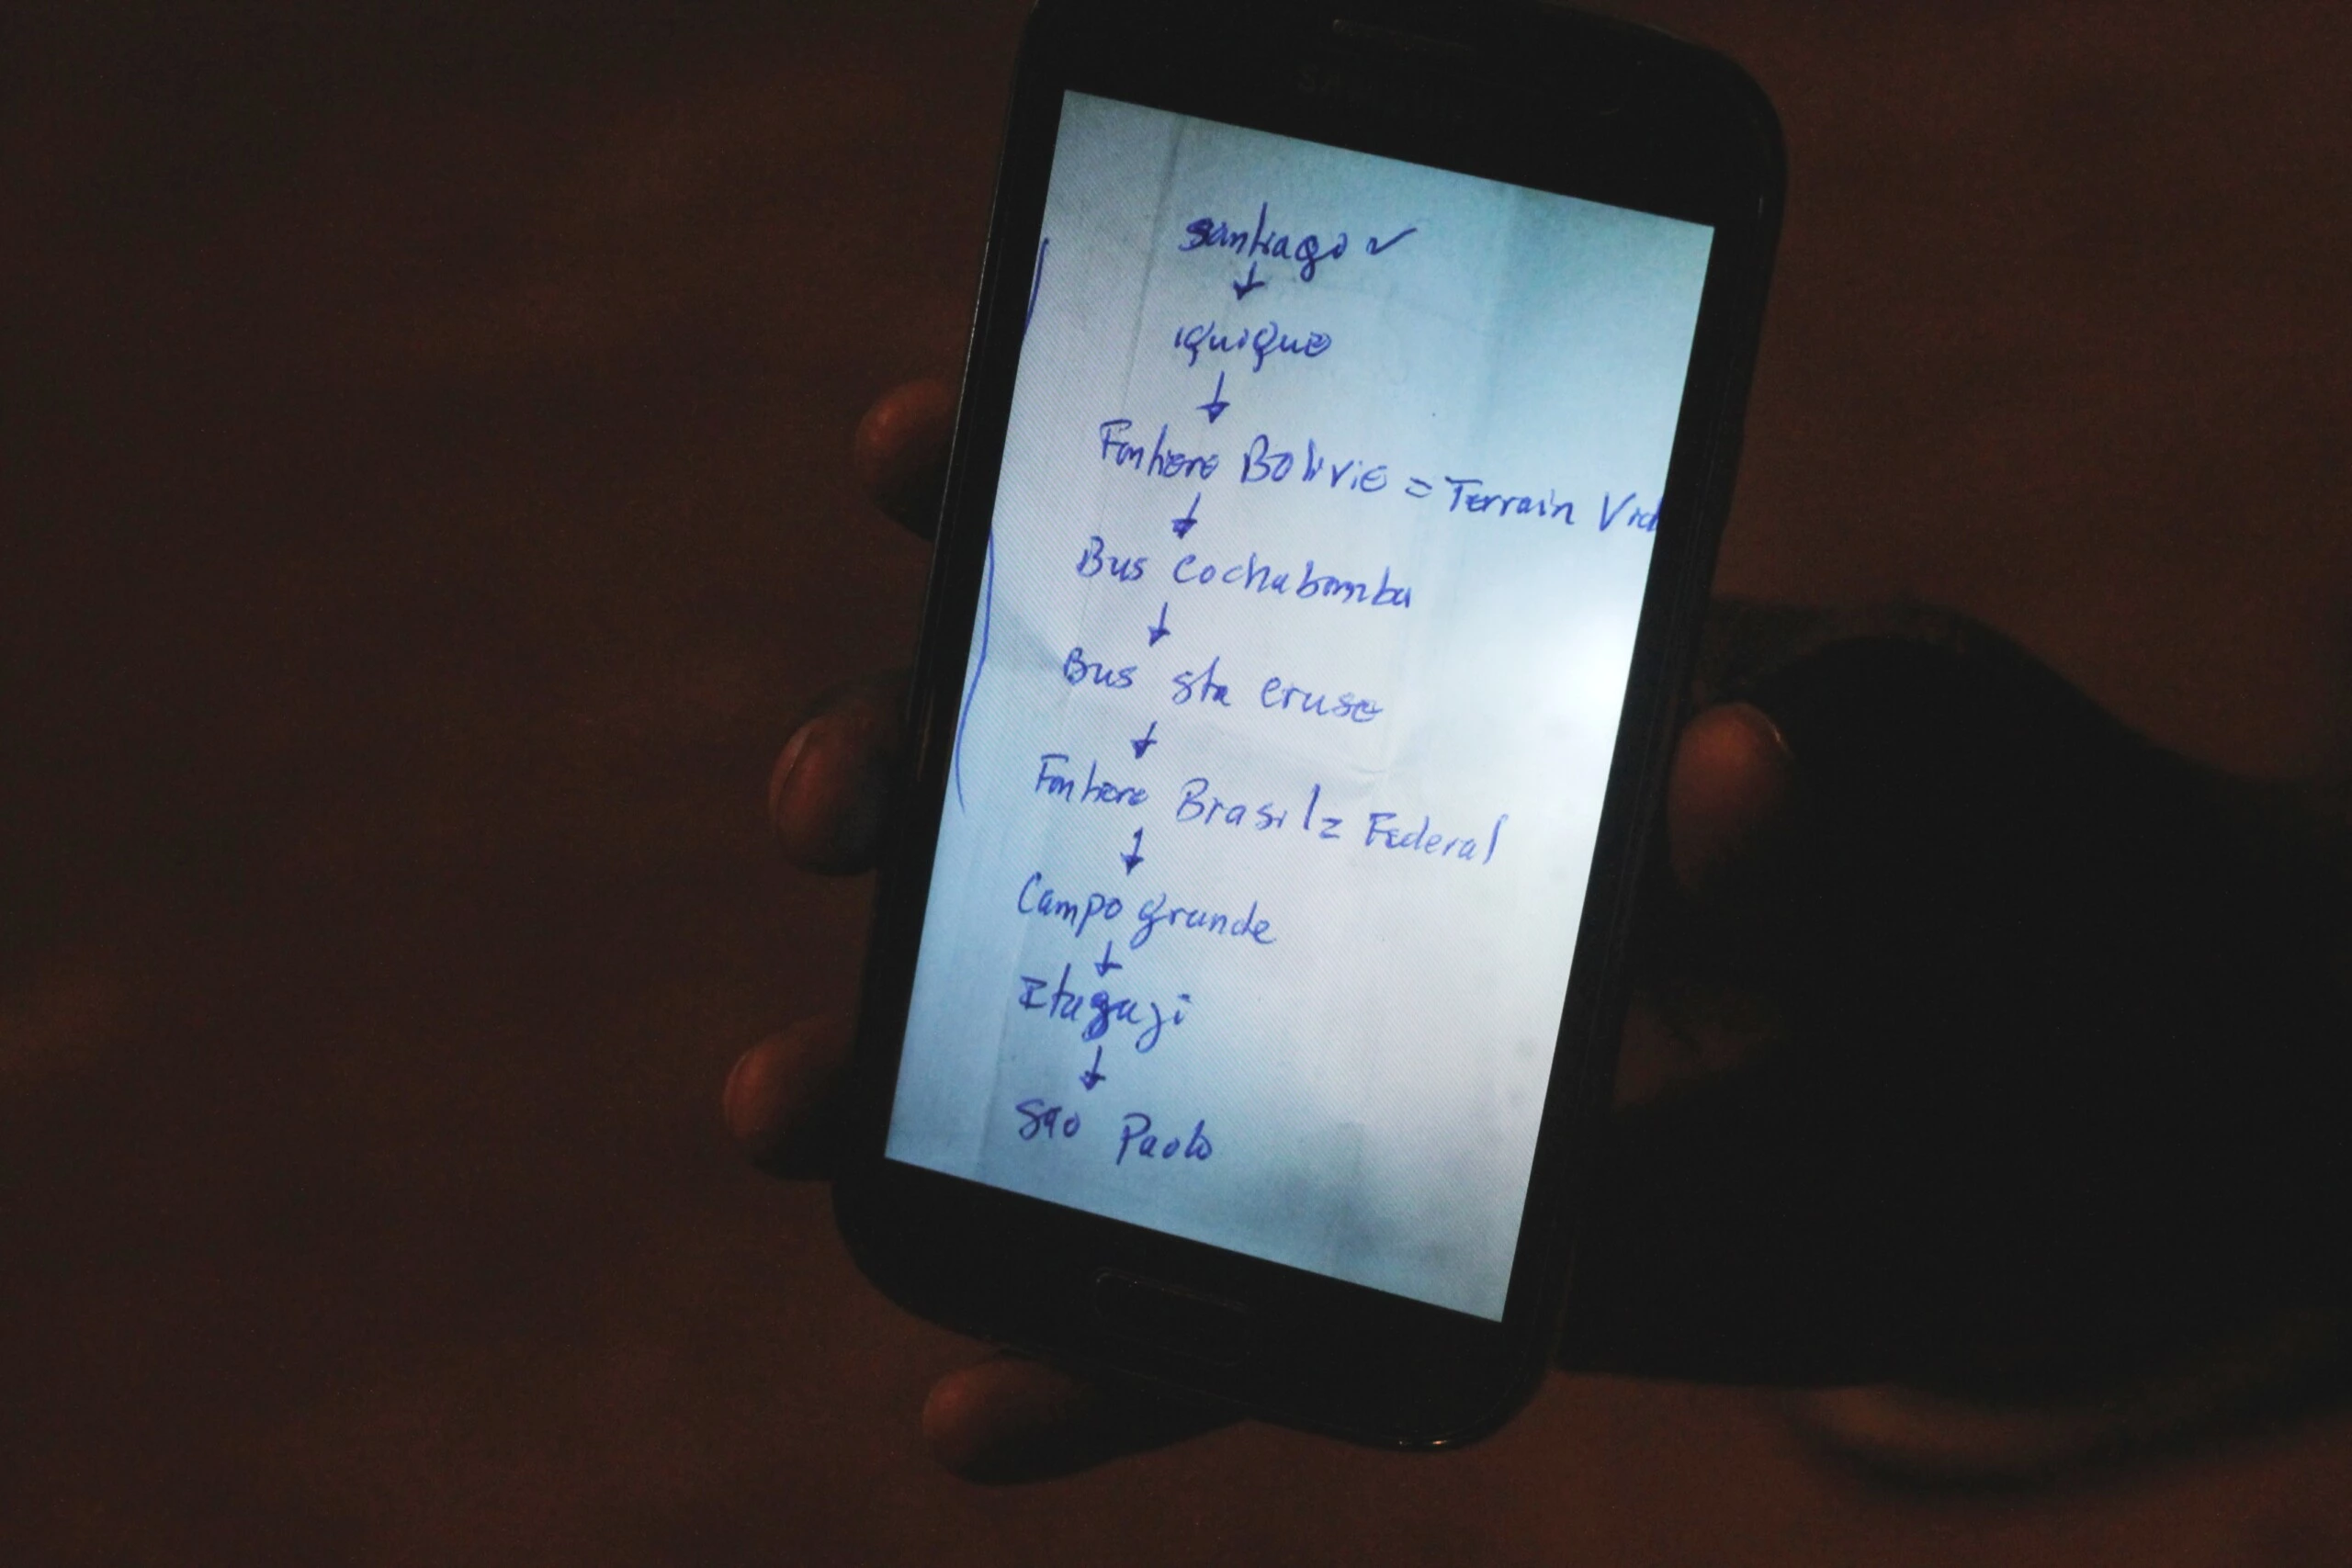 santiago
iquique
Fontiere Bolivie = Terrain
Bus Cochabamba
Bus sta cruse
Fontiere Brasil = Federal
Campo grande
Itagaji
Sao Paolo